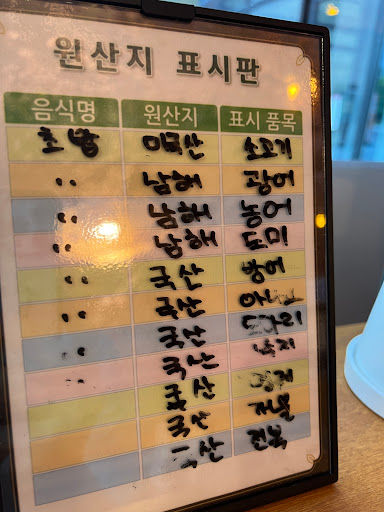 원산지 표시판
음식명 원산지 표시 품목
초밥 미국산 소고기
〃 남해 광어
〃 남해 농어
〃 남해 도미
〃 국산 방어
〃 국산
〃 국산
〃 국산
국산
국산
국산 전복